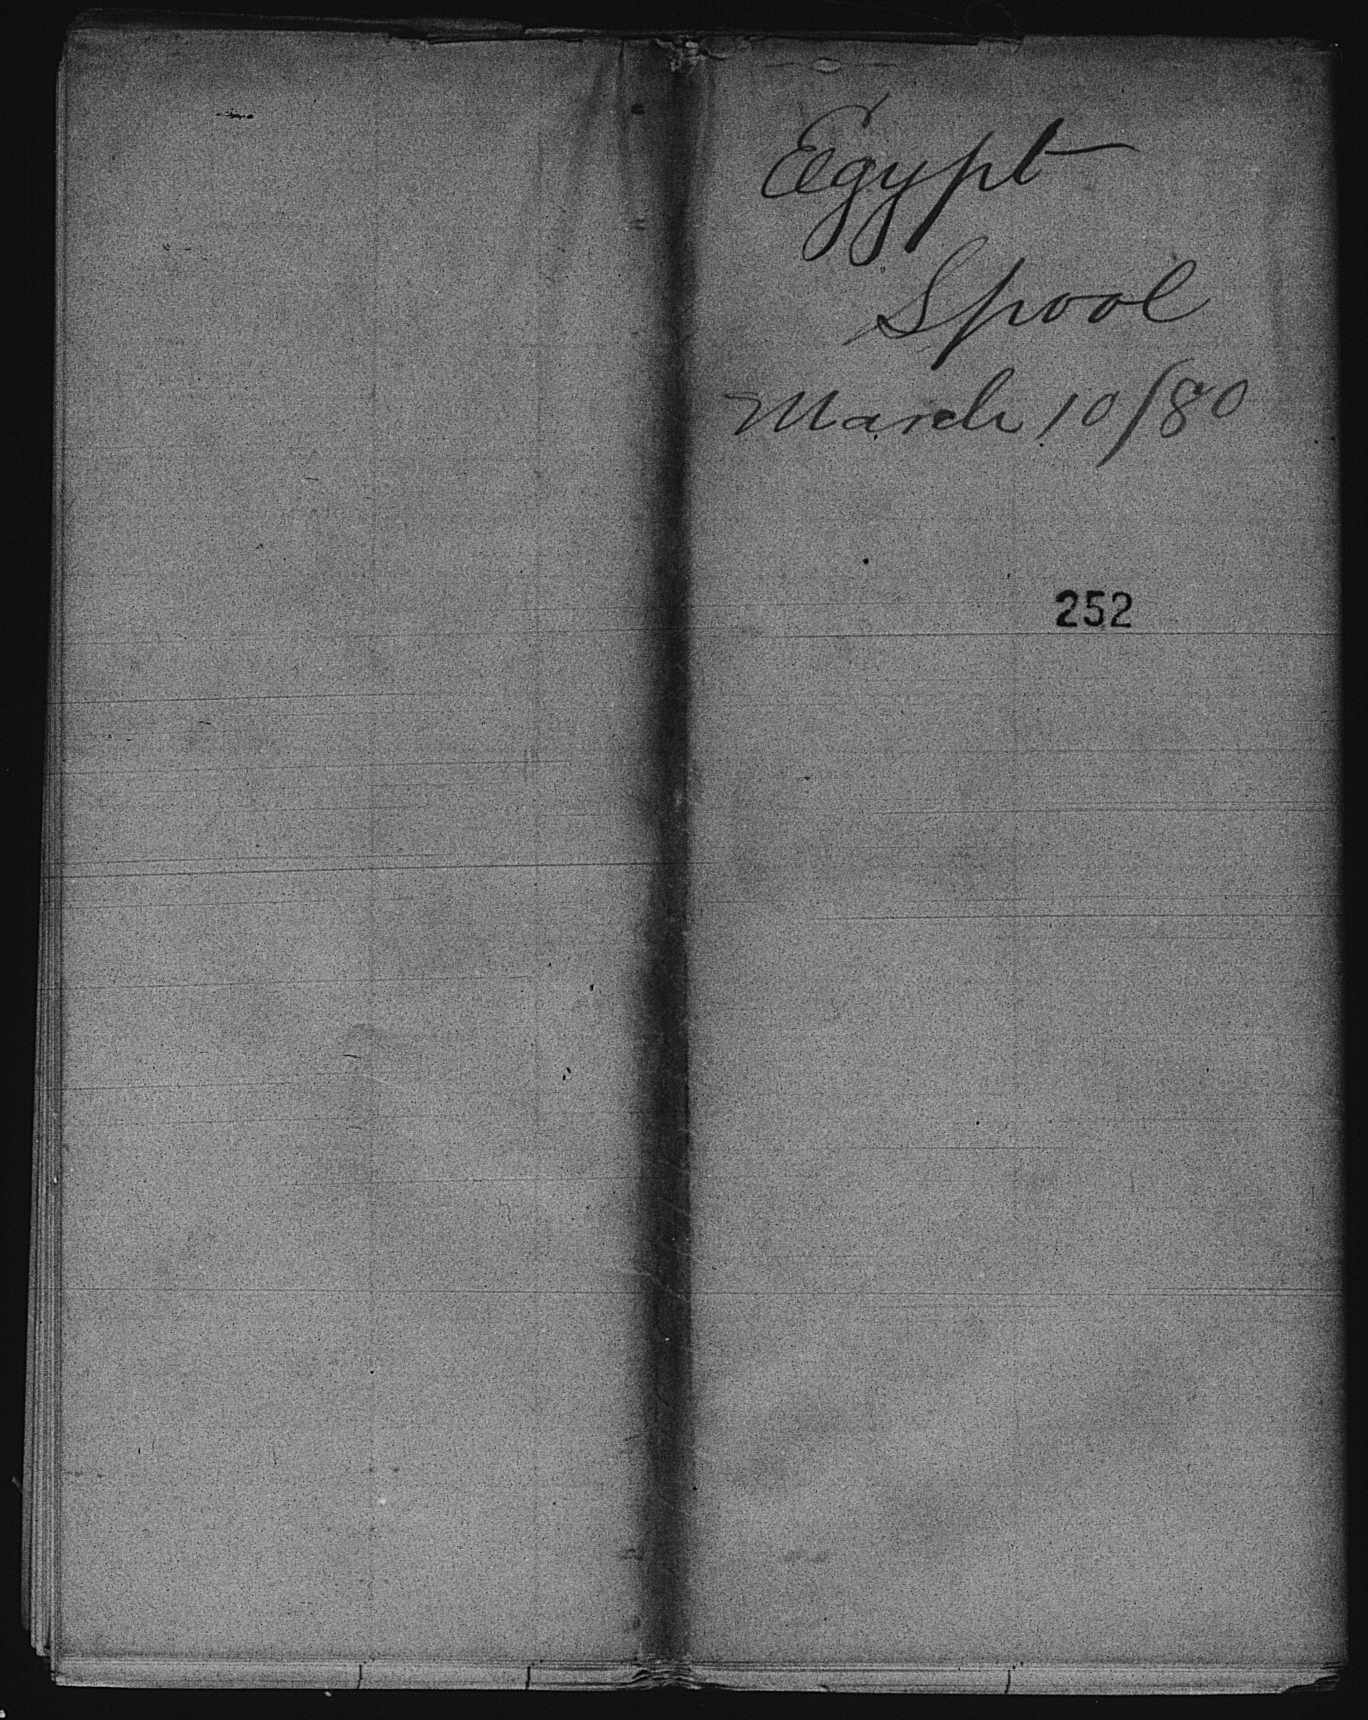 Egypt
Spool
March 10/80
252